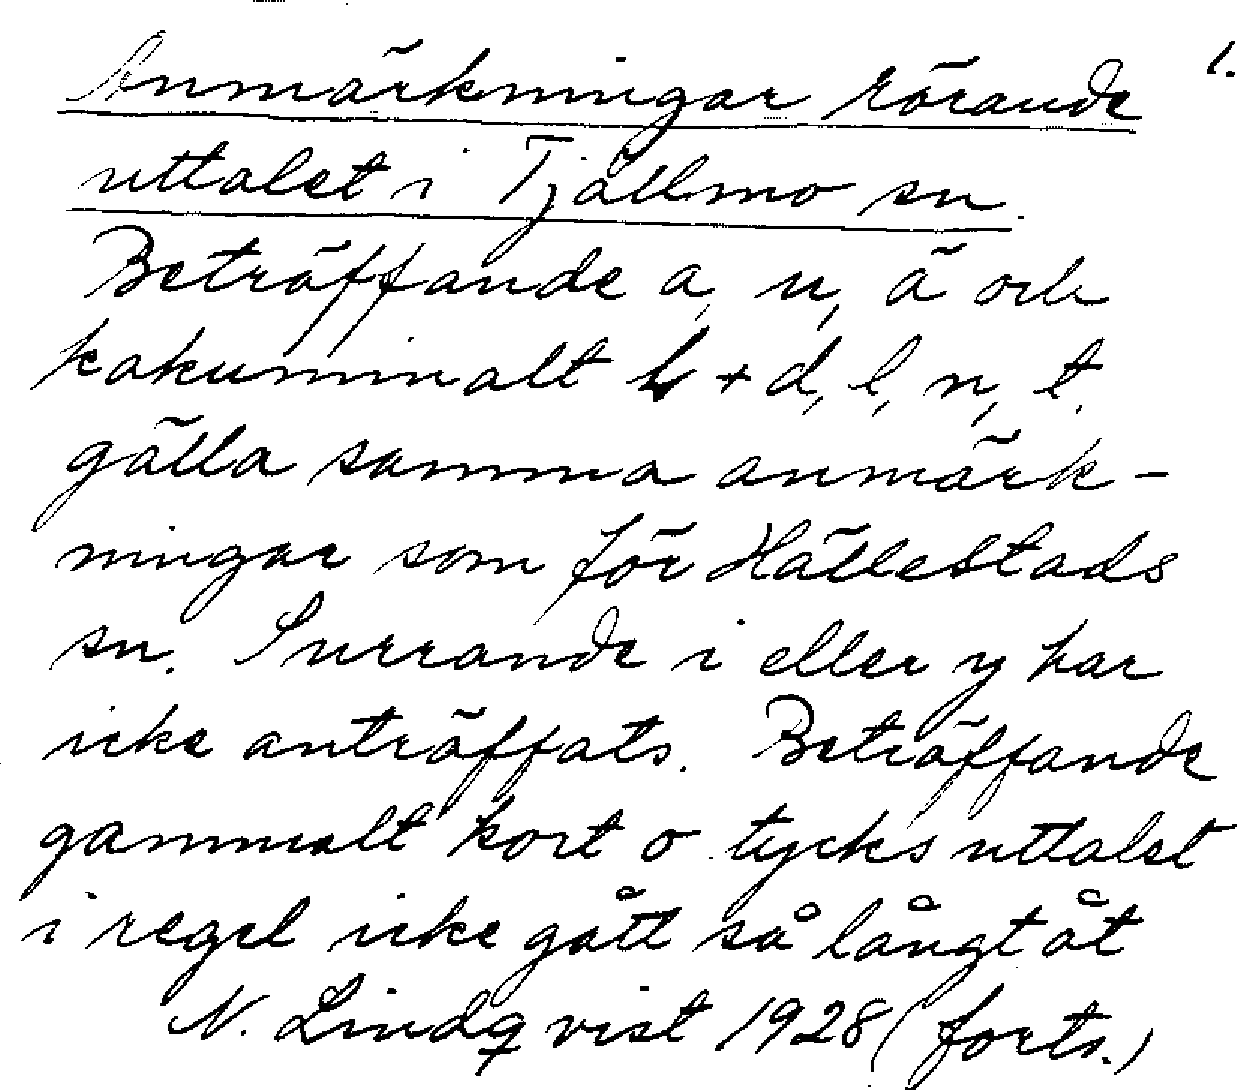 1.
Anmärkningar rörande
uttalet i Tjällmo sn.
Beträffande a, u, ä och
kakuminalt + d, l, n, t.
gälla samma anmärk-
ningar som för Hällestads
sn. Surrande i eller y har
icke anträffats. Beträffande
gammalt kort o tycks uttalet
i regel icke gått så långt åt
N. Lindqvist 1928 (forts.)